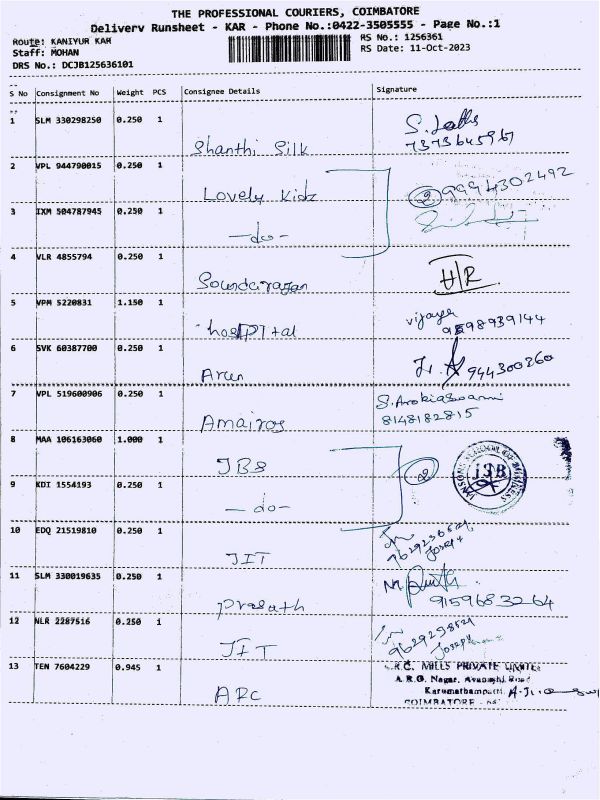 THE PROFESSIONAL COURIERS, COIMBATORE
Delivery Runsheet - KAR - Phone No.:0422-3505555 - Page No.:1
Route: KANIYUR KAR
RS No.: 1256361
Staff: MOHAN
RS Date: 11-Oct-2023
DRS No.: DCJB125636101
S No Consignment No Weight PCS Consignee Details Signature
1 SLM 330298250 0.250 1 Shanthi Silk
7373645967
2 VPL 944790015 0.250 1 Lovely Kidz
2 9994302492
3 IXM 504787945 0.250 1 -do-
4 VLR 4855794 0.250 1 Soundarajan H/R
5 VPM 5220831 1.150 1 hospital vijaya
6 SVK 60387700 0.250 1 Arun
944300260
7 VPL 519600906 0.250 1 Amairos S. Arokiaswami
8148182815
8 MAA 106163060 1.000 1 JBS
2 JSB
9 KDI 1554193 0.250 1 -do-
10 EDQ 21519810 0.250 1 JIT
Joseph
11 SLM 330019635 0.250 1 Prasath
9159683264
12 NLR 2287516 0.250 1 JIT
9629298521
Joseph
13 TEN 7604229 0.945 1 ARC
MILLS PRIVATE LIMITED
A.R.G. Nagar, Avanashi Road
Karumathampatti,
COIMBATORE